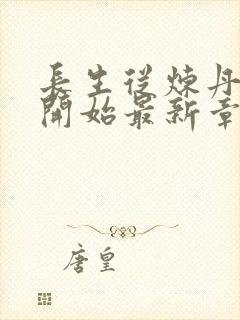 長生從煉丹
開始最新章
唐皇